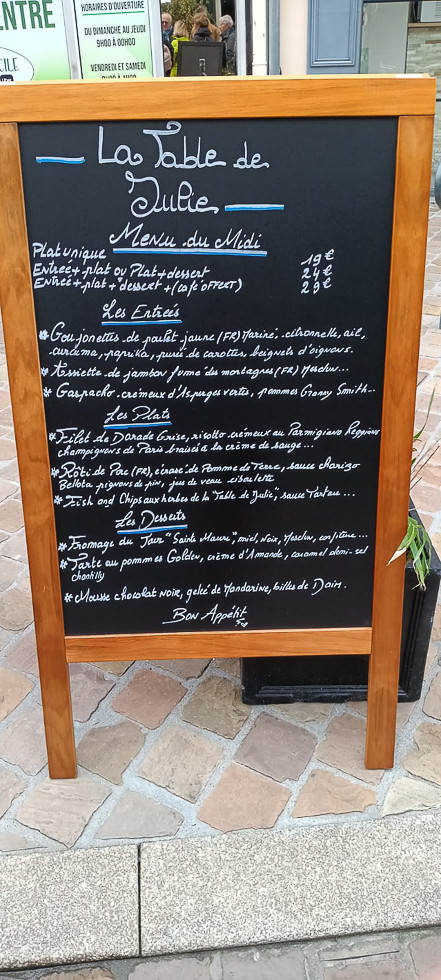 ENTRE
CILE
HORAIRES D'OUVERTURE
DU DIMANCHE AU JEUDI
9H00 À 00H00
VENDREDI ET SAMEDI
La Table de
Julie
Menu du Midi
Plat unique 19€
Entrée + plat ou Plat + dessert 24€
Entrée + plat + dessert + (café OFFERT) 29€
Les Entreés
* Goujonettes de poulet jaune (FR) Mariné, citronnelle, ail,
curcuma, paprika, pureé de carottes, beignets d'oignons.
* Assiette de jambon fumé des montagnes (FR) Mesclun...
* Gaspacho crémeux d'Asperges vertes, pommes Granny Smith...
Les Plats
* Filet de Dorade Grise, risotto crémeux au Parmigiano Reggiano
champignons de Paris braisés à la crème de sauge...
* Rôti de Porc (FR), écrasé de Pomme de Terre, sauce chorizo
pignons de pin, jus de veau ciboulette
* Fish and Chips aux herbes de la Table de Julie, sauce Tartare...
Les Desserts
* Fromage du Jour "Sainte Maure", miel, Noix, Mesclun, confiture...
* Tarte au pommes Golden, crème d'Amande, caramel demi-sel
chantilly
* Mousse chocolat Noir, geleé de Mandarine, billes de Daim.
Bon Appétit